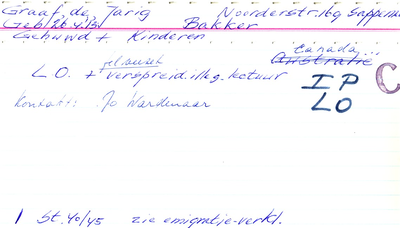 Graaf de, Jarig Noorderstr. 16g Sappemeer
Geb. 26.4. Bakker
Gehuwd + Kinderen
Canada
Australië
L O. + verspreid. illeg. lectuur
I P
L O
C
Kontakt: Jo Wardenaar
1 St. 40/45 zie emigratie-verkl.